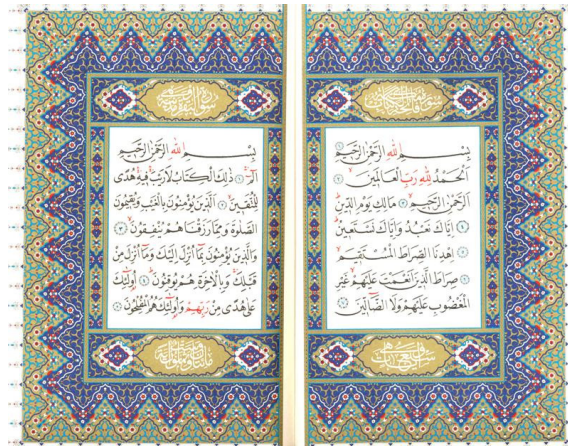 سورة فاتحة الكتاب
بسم الله الرحمن الرحيم ١
الحمد لله رب العالمين ٢
الرحمن الرحيم ٣ مالك يوم الدين
٤ إياك نعبد وإياك نستعين
٥ اهدنا الصراط المستقيم
٦ صراط الذين أنعمت عليهم غير
المغضوب عليهم ولا الضالين ٧
سورة البقرة
بسم الله الرحمن الرحيم
الم ١ ذلك الكتاب لا ريب فيه هدى
للمتقين ٢ الذين يؤمنون بالغيب ويقيمون
الصلوة ومما رزقناهم ينفقون ٣
والذين يؤمنون بما أنزل إليك وما أنزل من
قبلك وبالآخرة هم يوقنون ٤ أولئك
على هدى من ربهم وأولئك هم المفلحون ٥